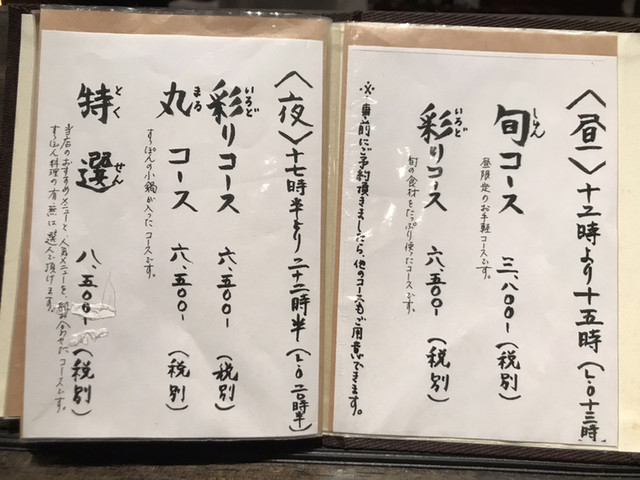 〈昼〉十二時より十五時(L.O十三時)
旬コース 三、八〇〇-(税別)
しゅん
昼限定のお手軽コースです。
彩りコース 六、五〇〇-(税別)
いろど
旬の食材をたっぷり使ったコースです。
※事前にご予約頂きましたら、他のコースもご用意できます。
〈夜〉十七時半より二十二時半(L.O二〇時半)
彩りコース 六、五〇〇-(税別)
いろど
丸コース 六、五〇〇-(税別)
まる
すっぽんの小鍋が入ったコースです。
特選 八、五〇〇-(税別)
とくせん
当店のおすすめメニューと、人気メニューを、組み合わせたコースです。
すっぽん料理の有無は選んで頂けます。